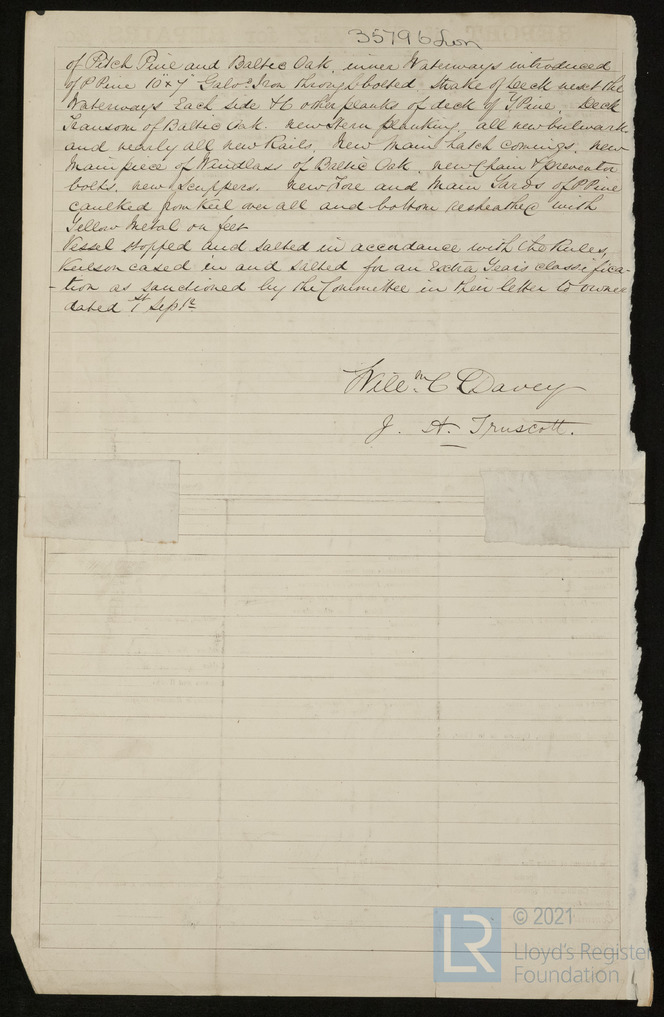 35796 Lon
of Pitch Pine and Baltic Oak, inner Waterways introduced
of P Pine 10"x7" Galvd Iron through bolted. Strake of Deck next the
Waterways Each side & 6 other planks of deck of Y Pine. Deck
Transom of Baltic Oak. new stern planking, all new bulwark
and nearly all new Rails. New Main hatch comings, new
Main piece of Windlass of Baltic Oak, new Chain & preventer
bolts. new Scuppers. new Fore and Main Yards of P Pine
caulked from Keel over all and bottom resheathed with
Yellow Metal on felt
Vessel stopped and salted in accordance with the Rules,
Keelson cased in and salted for an Extra Years classifica-
-tion as sanctioned by the Committee in their letter to owner
dated 1st Sept
Willm C Davey
J. H. Truscott.
LR © 2021
Lloyd's Register
Foundation